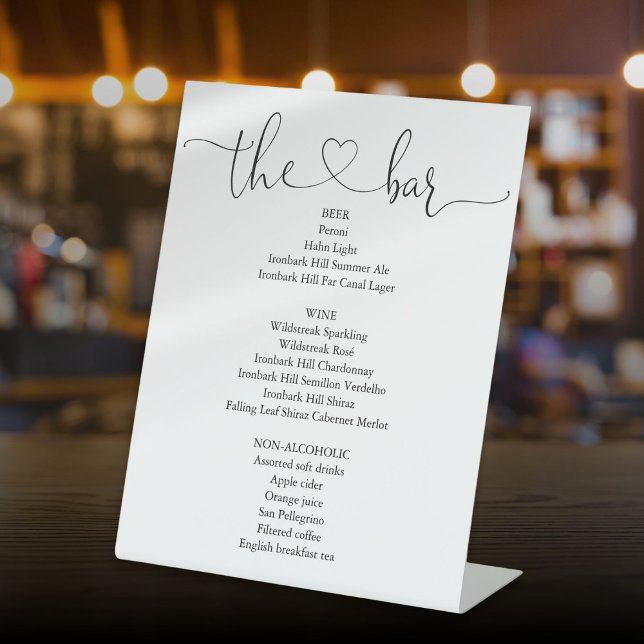 the bar
BEER
Peroni
Hahn Light
Ironbark Hill Summer Ale
Ironbark Hill Far Canal Lager
WINE
Wildstreak Sparkling
Wildstreak Rosé
Ironbark Hill Chardonnay
Ironbark Hill Semillon Verdelho
Ironbark Hill Shiraz
Falling Leaf Shiraz Cabernet Merlot
NON-ALCOHOLIC
Assorted soft drinks
Apple cider
Orange juice
San Pellegrino
Filtered coffee
English breakfast tea